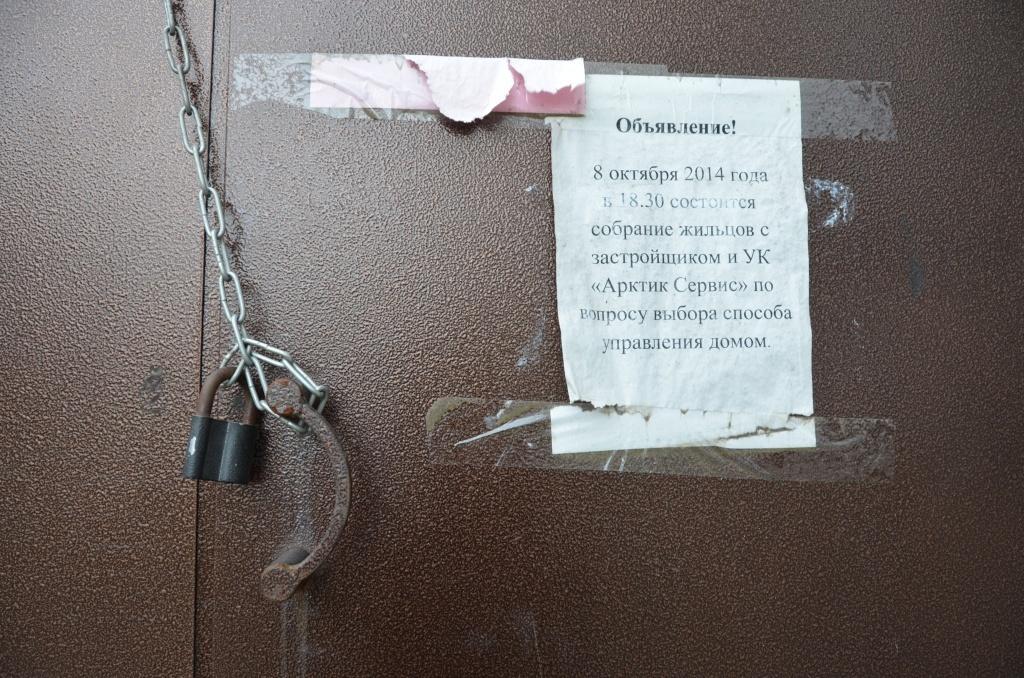 Объявление!
8 октября 2014 года
в 18.30 состоится
собрание жильцов с
застройщиком и УК
«Арктик Сервис» по
вопросу выбора способа
управления домом.